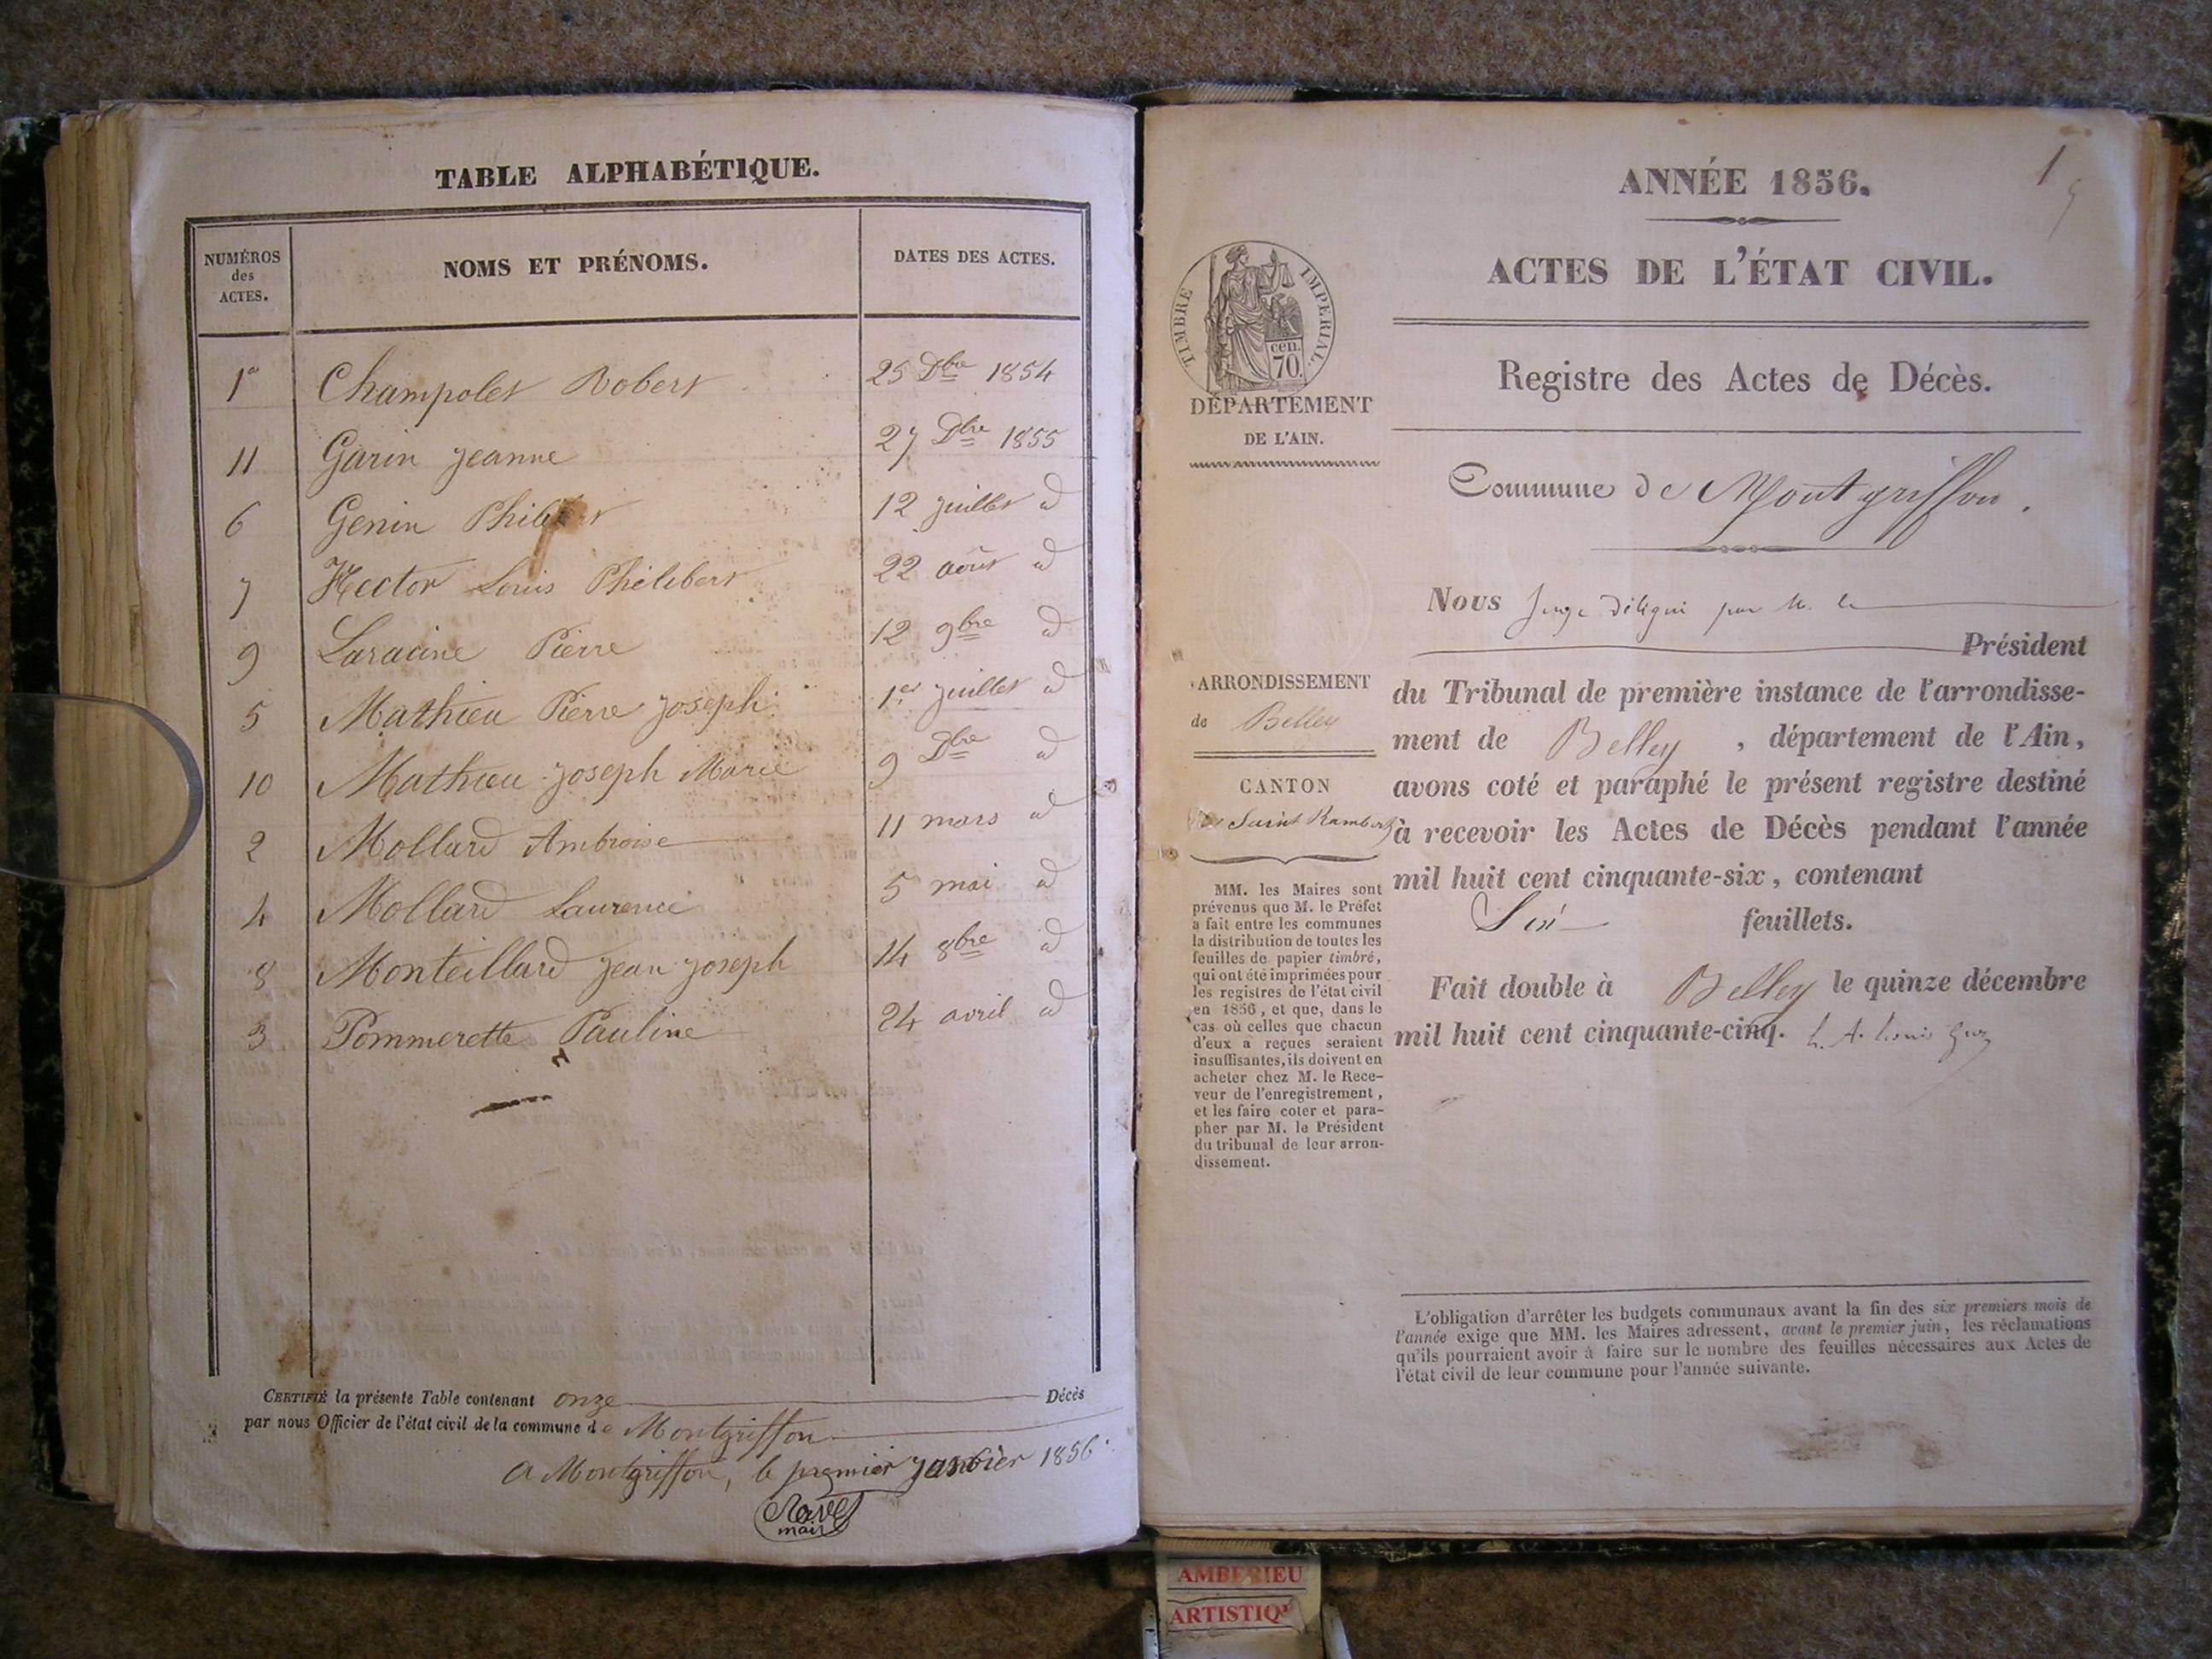 TABLE ALPHABÉTIQUE.
NUMÉROS
des
ACTES.
NOMS ET PRÉNOMS.
DATES DES ACTES.
1er Champolet Robert 25 Dbre 1854
11 Garin Jeanne 27 Dbre 1855
6 Genin Philibert 12 juillet d
7 Hector Louis Philibert 22 août d
9 Laracine Pierre 12 9bre d
5 Mathieu Pierre Joseph 1er juillet d
10 Mathieu Joseph Marie 9 Dbre d
2 Mollard Ambroise 11 mars d
4 Mollard Laurence 5 mai d
8 Monteillard Jean Joseph 14 8bre d
3 Pommerette Pauline 24 avril d
CERTIFIÉ la présente Table contenant onze Décès
par nous Officier de l'état civil de la commune de Montgriffon
A Montgriffon, le premier janvier 1856.
Ravet
maire
1
ANNÉE 1856.
ACTES DE L'ÉTAT CIVIL.
TIMBRE IMPERIAL.
cen.
70.
DÉPARTEMENT
DE L'AIN.
Registre des Actes de Décès.
Commune de Montgriffon.
ARRONDISSEMENT
de Belley
CANTON
de Saint Rambert
MM. les Maires sont
prévenus que M. le Préfet
a fait entre les communes
la distribution de toutes les
feuilles de papier timbré,
qui ont été imprimées pour
les registres de l'état civil
en 1856, et que, dans le
cas où celles que chacun
d'eux a reçues seraient
insuffisantes, ils doivent en
acheter chez M. le Rece-
veur de l'enregistrement,
et les faire coter et para-
pher par M. le Président
du tribunal de leur arron-
dissement.
Nous Juge délégué par M. le
Président
du Tribunal de première instance de l'arrondisse-
ment de Belley, département de l'Ain,
avons coté et paraphé le présent registre destiné
à recevoir les Actes de Décès pendant l'année
mil huit cent cinquante-six, contenant
Six feuillets.
Fait double à Belley le quinze décembre
mil huit cent cinquante-cinq.
L'obligation d'arrêter les budgets communaux avant la fin des six premiers mois de
l'année exige que MM. les Maires adressent, avant le premier juin, les réclamations
qu'ils pourraient avoir à faire sur le nombre des feuilles nécessaires aux Actes de
l'état civil de leur commune pour l'année suivante.
AMBERIEU
ARTISTIQ